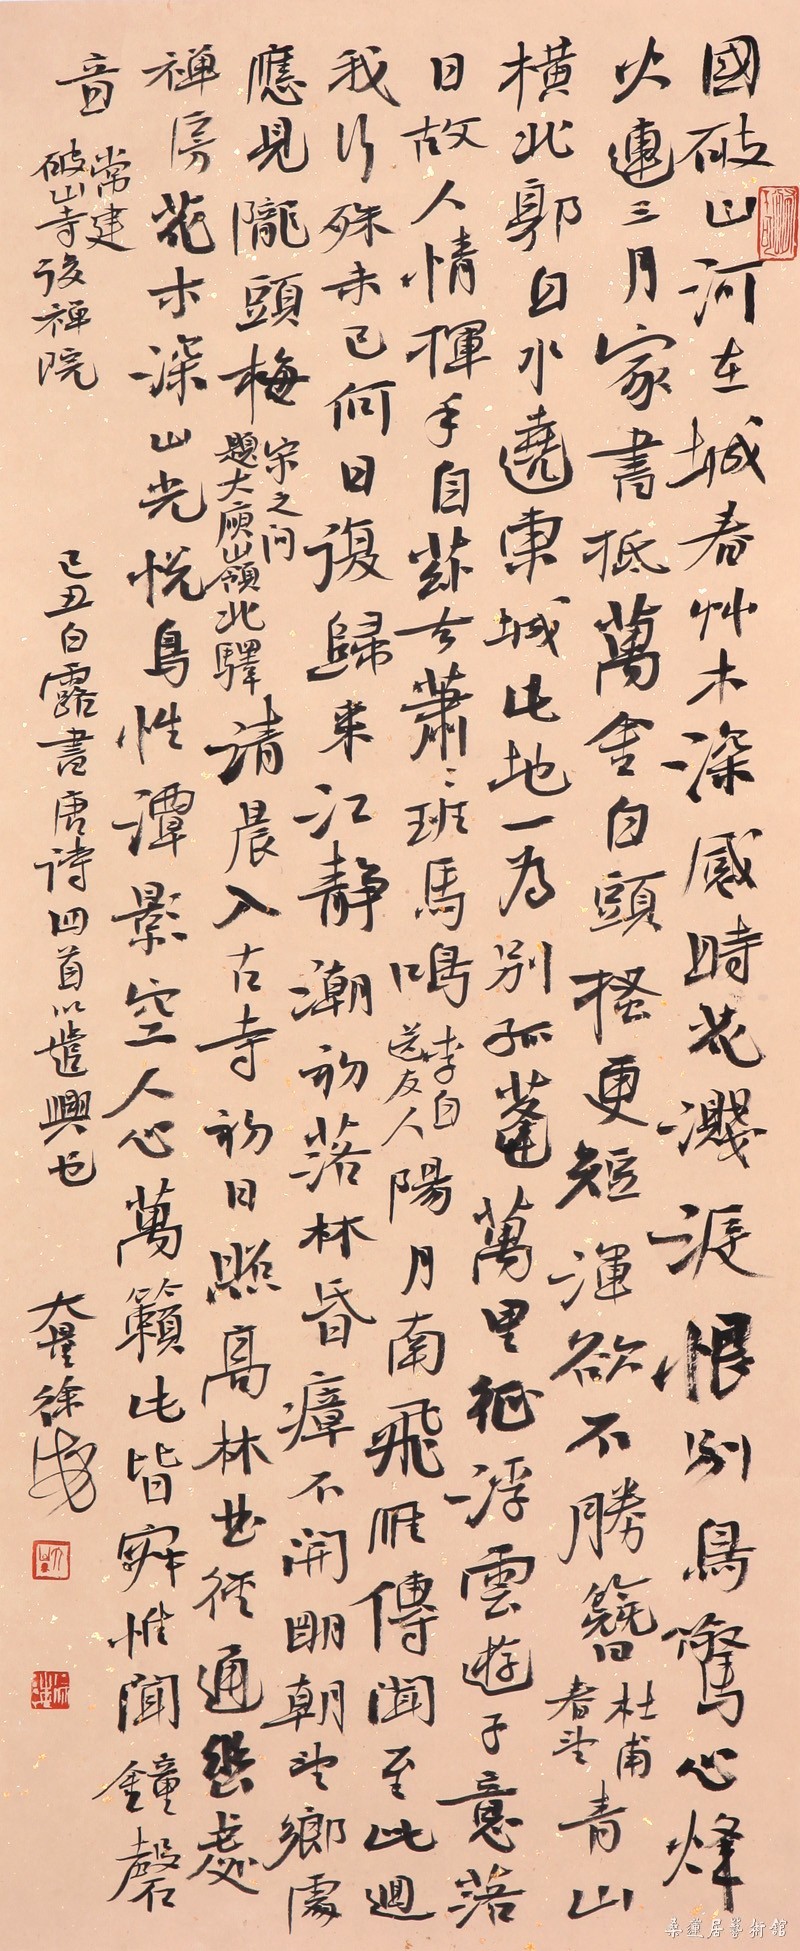 國破山河在城春艸木深感時花濺淚恨別鳥驚心烽
火連三月家書抵萬金白頭搔更短渾欲不勝簪杜甫春望青山
橫北郭白水遶東城此地一為別孤蓬萬里征浮雲遊子意落
日故人情揮手自茲去蕭〻班馬鳴李白送友人陽月南飛雁傳聞至此迴
我行殊未已何日復歸来江靜潮初落林昏瘴不開明朝望鄉處
應見隴頭梅宋之问題大庾嶺北驛清晨入古寺初日照高林曲徑通幽處
禪房花木深山光悅鳥性潭影空人心萬籟此皆寂惟聞鐘磬
音常建破山寺後禪院
己丑白露書唐詩四首以遣興也
徐
桑蓮居藝術館